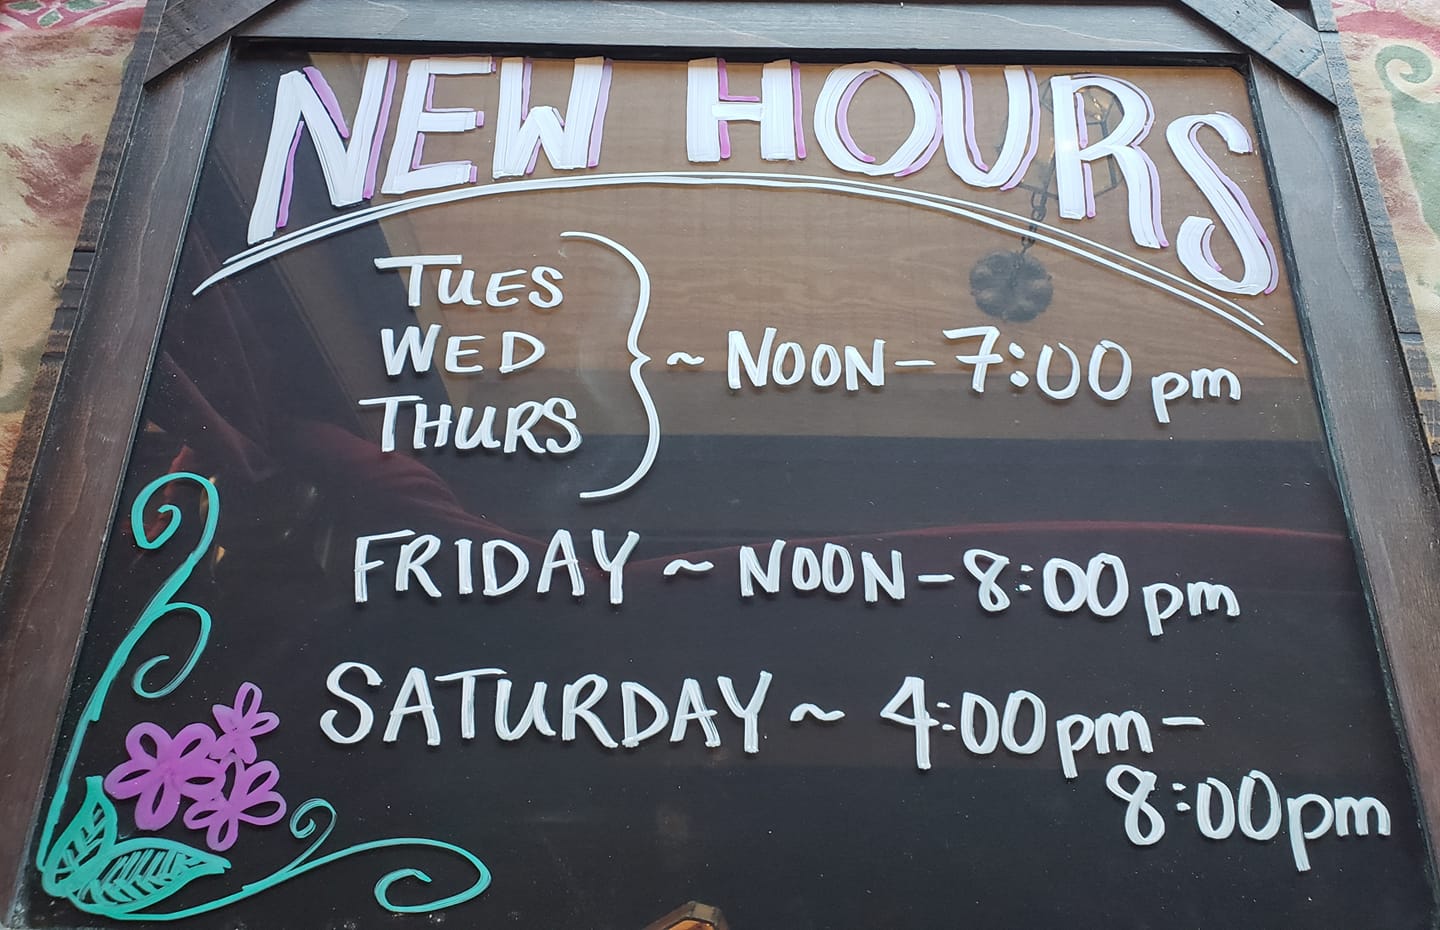 NEW HOURS
TUES
WED
THURS
~ NOON - 7:00 pm
FRIDAY ~ NOON - 8:00 pm
SATURDAY ~ 4:00 pm -
8:00 pm